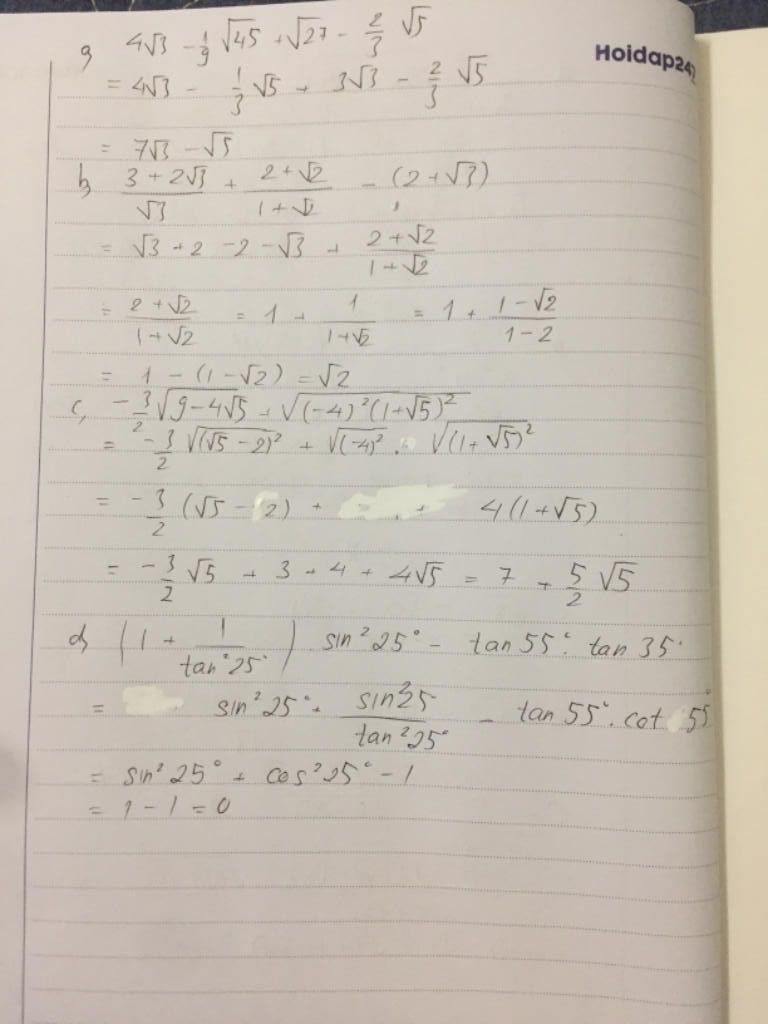 a, 4√3 - 1/9 √45 + √27 - 2/3 √5
Hoidap247
= 4√3 - 1/3 √5 + 3√3 - 2/3 √5
= 7√3 - √5
b, (3 + 2√3)/√3 + (2 + √2)/(1 + √2) - (2 + √3)
= √3 + 2 - 2 - √3 + (2 + √2)/(1 + √2)
= (2 + √2)/(1 + √2) = 1 + 1/(1 + √2) = 1 + (1 - √2)/(1 - 2)
= 1 - (1 - √2) = √2
c, -3/2 √(9 - 4√5) + √((-4)²(1 + √5)²)
= -3/2 √((√5 - 2)²) + √((-4)²) . √((1 + √5)²)
= -3/2 (√5 - 2) + + 4(1 + √5)
= -3/2 √5 + 3 + 4 + 4√5 = 7 + 5/2 √5
d, (1 + 1/(tan²25°)) sin²25° - tan 55° . tan 35°
= sin²25° + sin²25/(tan²25°) - tan 55° . cot 55°
= sin²25° + cos²25° - 1
= 1 - 1 = 0